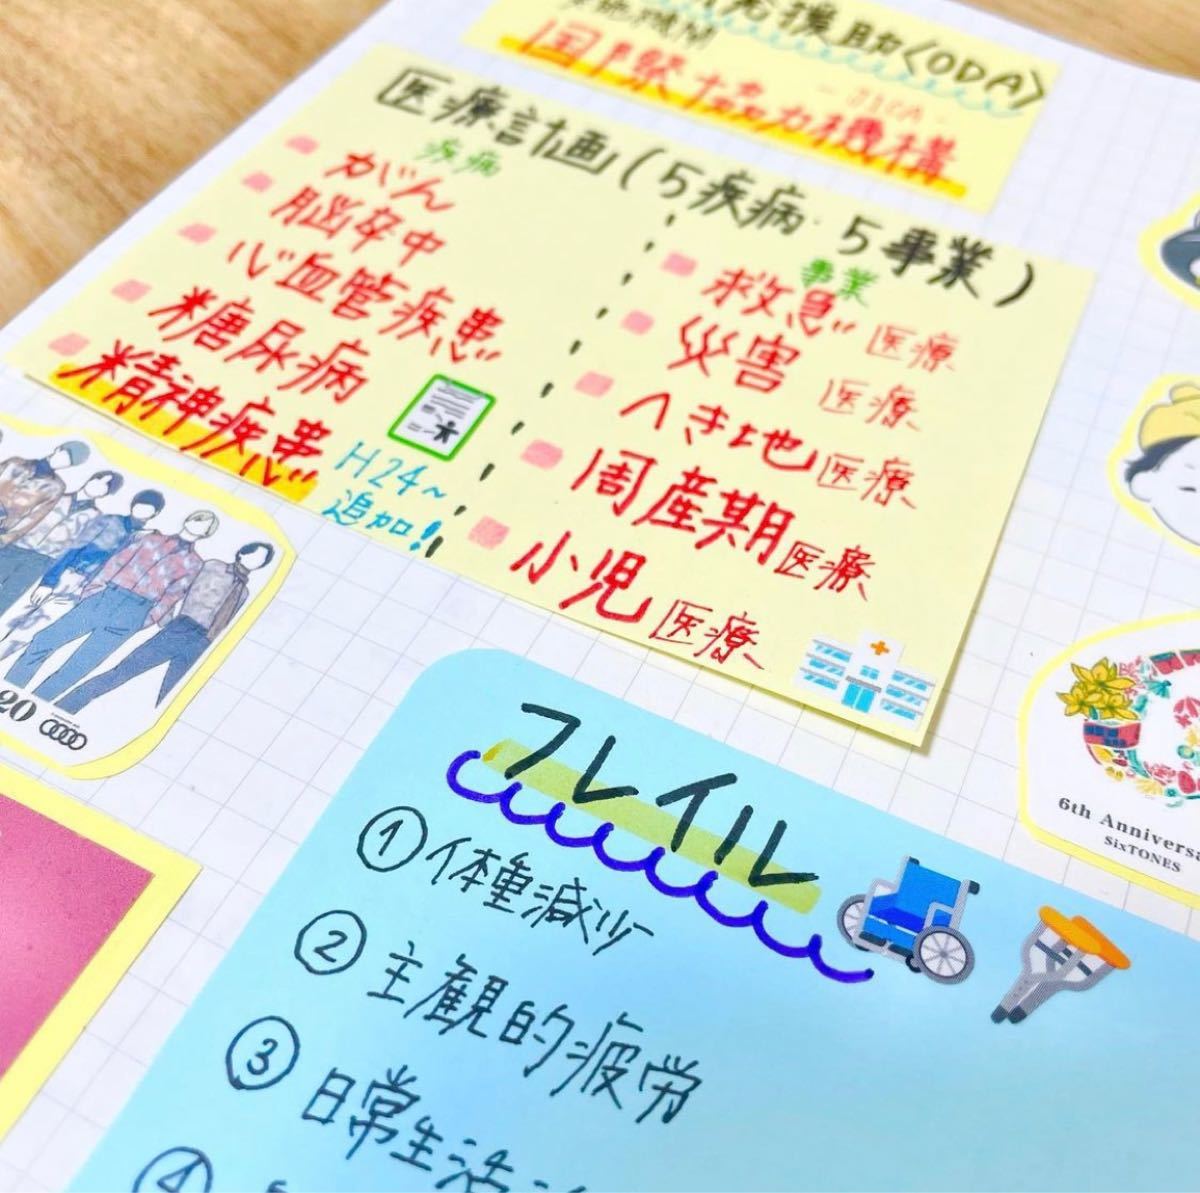 援助〈ODA〉
-JICA-
国際協力機構
医療計画(5疾病・5事業)
疾病
がん
脳卒中
心血管疾患
糖尿病
精神疾患
H24~
追加!
事業
救急医療
災害医療
へき地医療
周産期医療
小児医療
20
6th Anniversa
SixTONES
フレイル
① 体重減少
② 主観的疲労
③ 日常生活
④